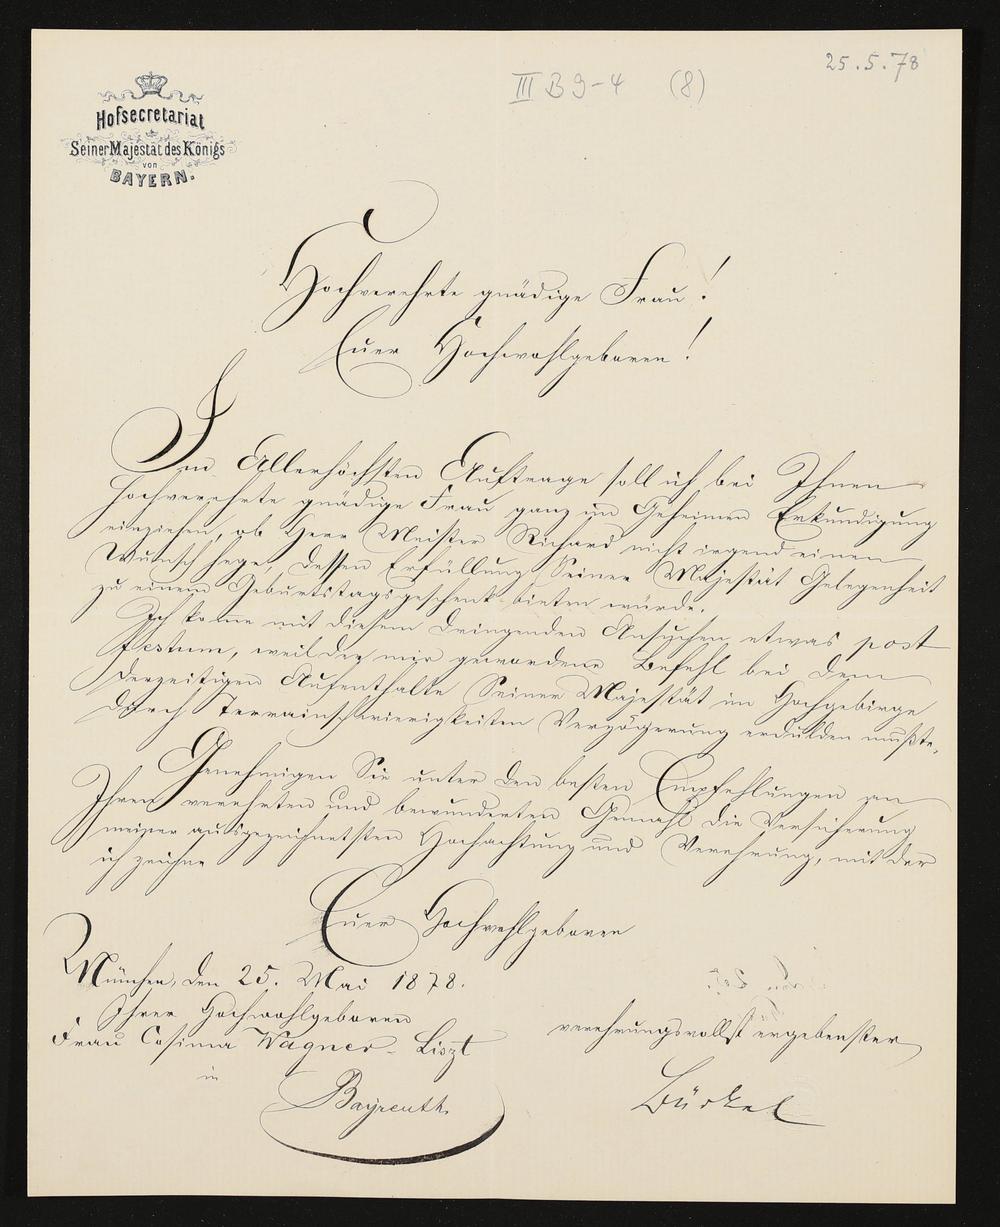 25.5.78
III B 9-4 (8)
Hofsecretariat
Seiner Majestät des Königs
von
BAYERN.
Hochverehrte gnädige Frau!
Euer Hochwohlgeboren!
Im Allerhöchsten Auftrage soll ich bei Ihnen
hochverehrte gnädige Frau ganz im Geheimen Erkundigung
einziehen, ob Herr Meister Richard nicht irgend einen
Wunsch hege, dessen Erfüllung Seiner Majestät Gelegenheit
zu einem Geburtstagsgeschenk bieten würde.
Ich komme mit diesem dringenden Ansuchen etwas post
festum, weil der mir gewordene Befehl bei dem
derzeitigen Aufenthalte Seiner Majestät im Hochgebirge
durch Terrainschwierigkeiten Verzögerung erdulden mußte.
Genehmigen Sie unter den besten Empfehlungen an
Ihren verehrten und bewunderten Gemahl die Versicherung
meiner ausgezeichnetsten Hochachtung und Verehrung, mit der
ich zeichne
Euer Hochwohlgeboren
München, den 25. Mai 1878.
Ihrer Hochwohlgeboren
Frau Cosima Wagner-Liszt
in
Bayreuth.
verehrungsvollst ergebenster
Bürkel